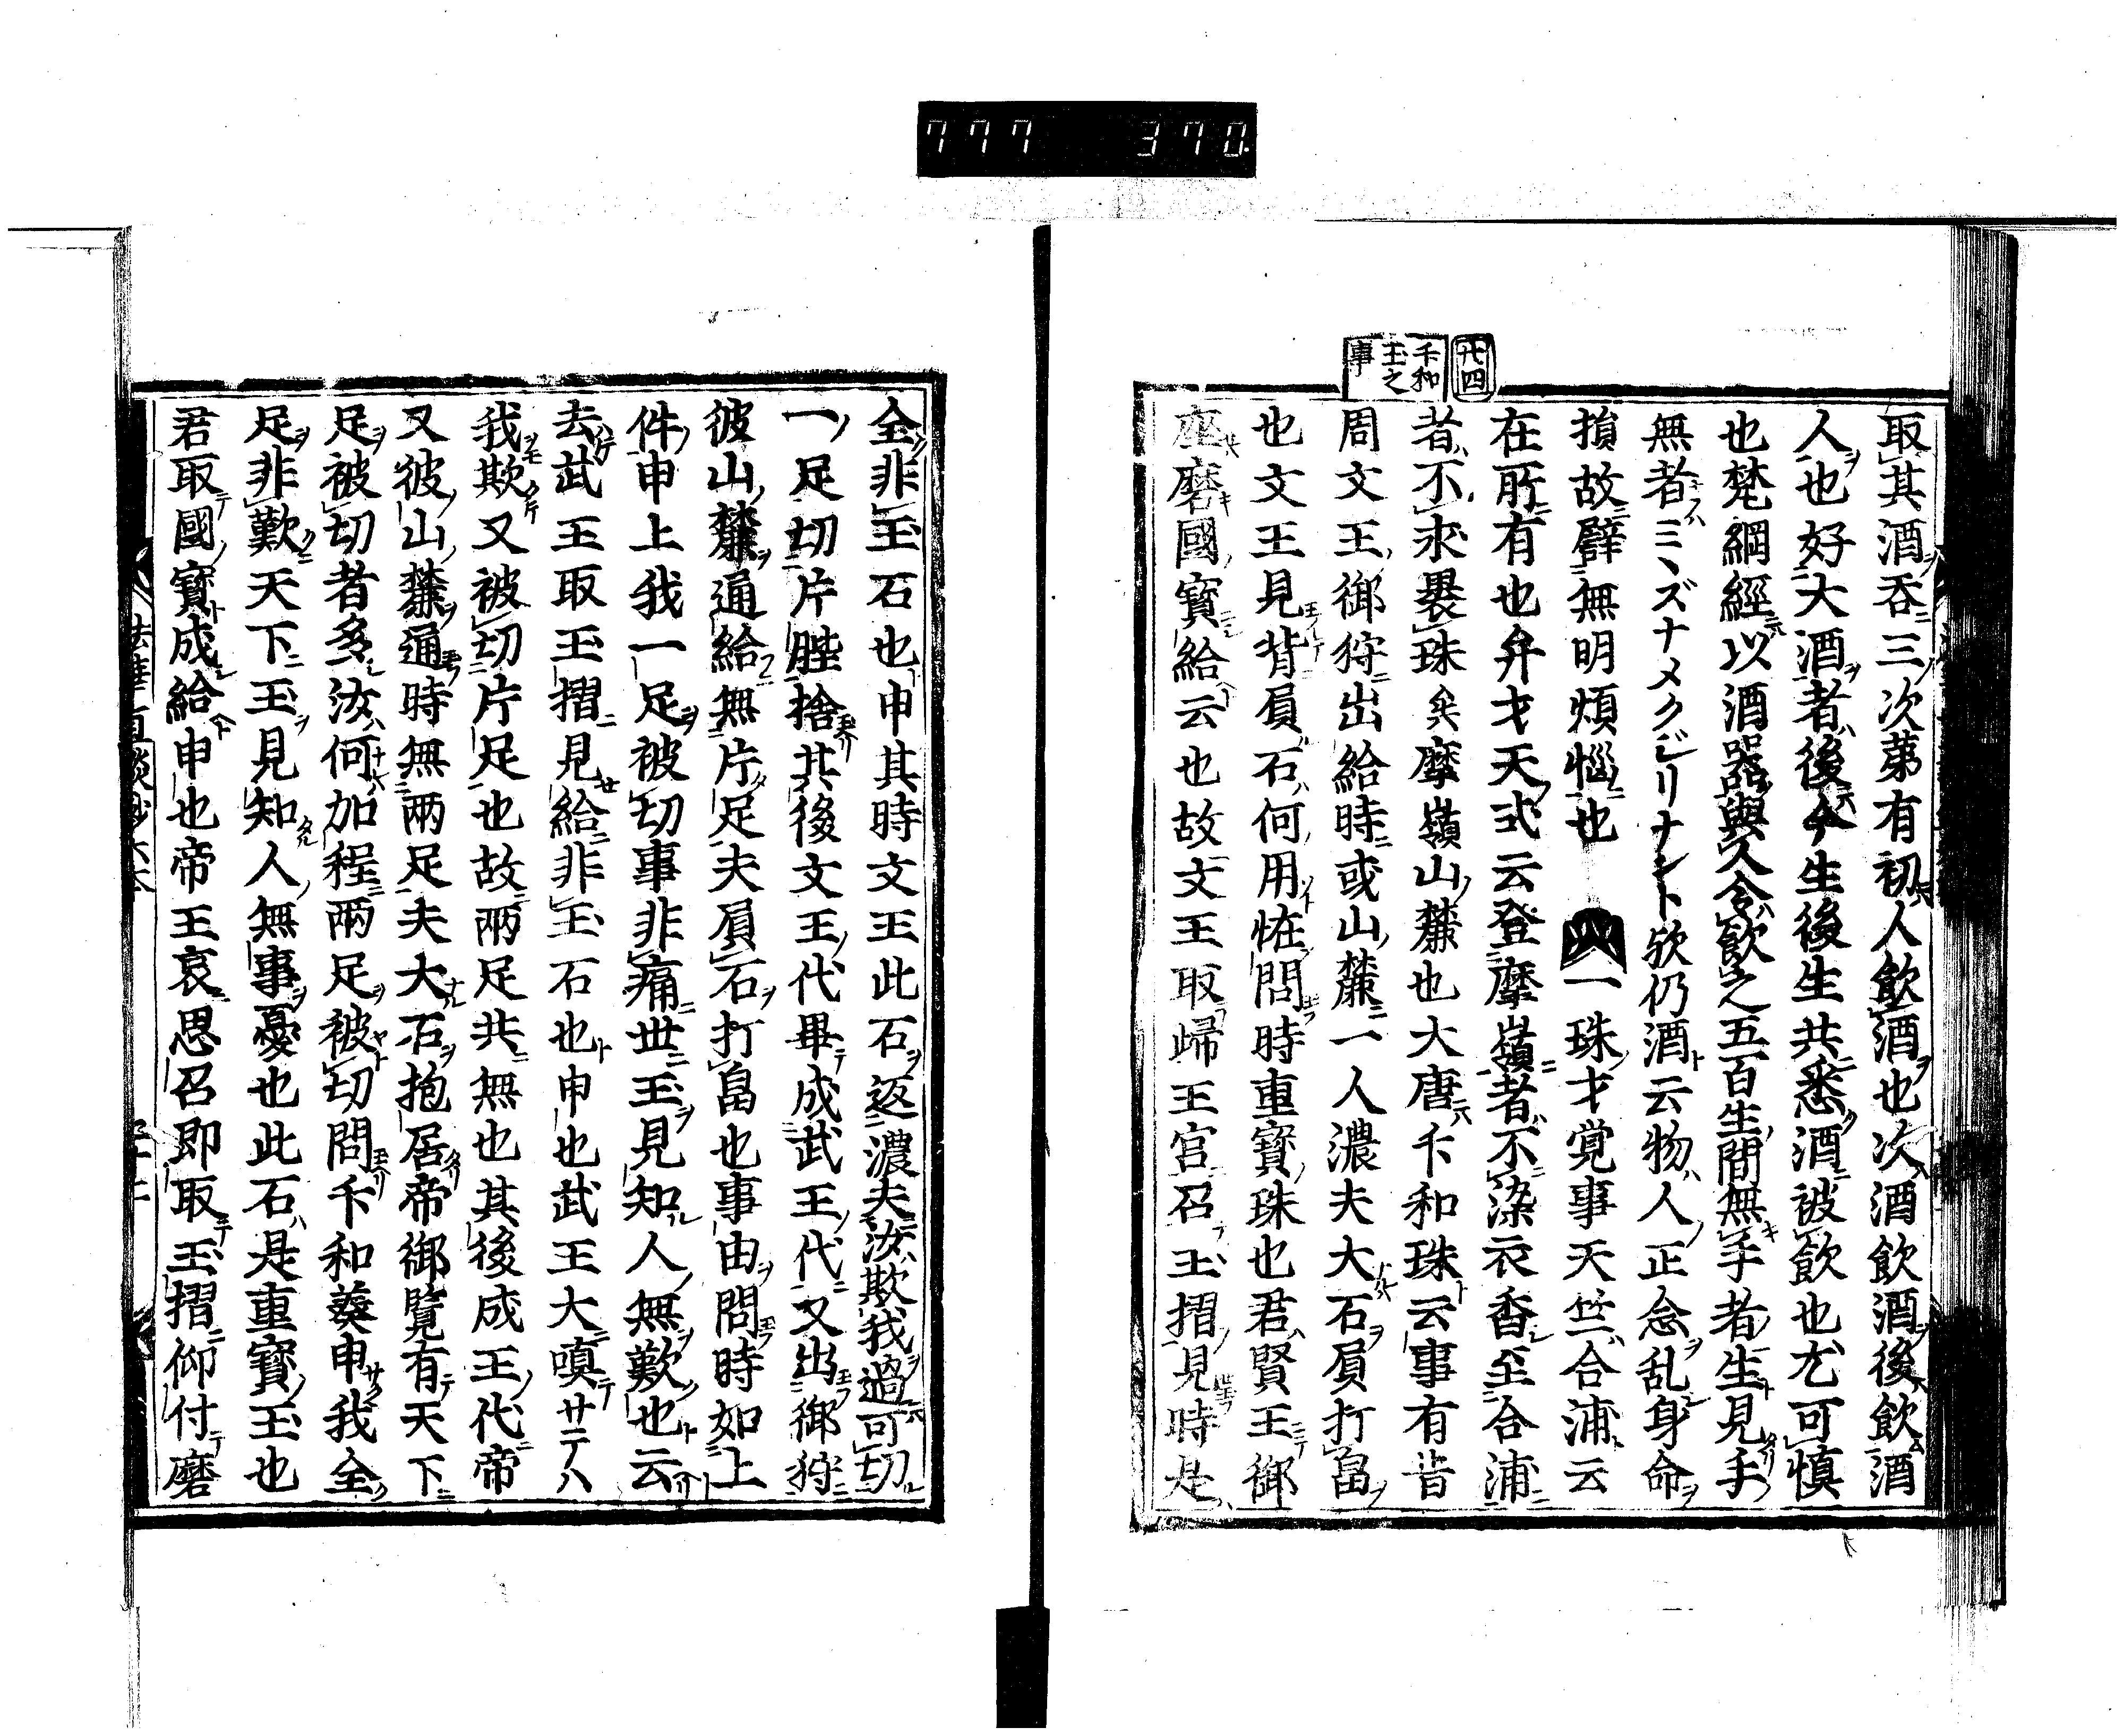 777 370
廿四
卞和
玉之
事
取其酒呑三次第有初人飲酒也次酒飲酒後飲酒
人也好大酒者後今生後生共悉酒被飲也尤可慎
也梵網經以酒器與人令飲之五百生間無手者生見手
無者ミヽズナメクジリナント欤仍酒云物人正念乱身命
損故譬無明煩惱也 一珠才覚事天竺合浦云
在所有也弁才天式云登摩嶺者不染衣香至合浦
者不求裹珠矣摩嶺山麓也大唐卞和珠云事有昔
周文王御狩出給時或山麓一人濃夫大石負打畠
也文王見背負石何用恠問時重寳珠也君賢王御
座磨國寳給云也故文王取帰王宮召玉摺見時是
全非玉石也申其時文王此石返濃夫汝欺我過可切
一足切片膝捨其後文王代畢成武王代又出御狩
彼山麓通給無片足夫負石打畠也事由問時如上
件申上我一足被切事非痛世玉見知人無歎也云
去武王取玉摺見給非玉石也申也武王大嗔サテハ
我欺又被切片足也故兩足共無也其後成王代帝
又彼山麓通時無兩足夫大石抱居帝御覧有天下
足被切者多汝何加程兩足被切問卞和奏申我全
足非歎天下玉見知人無事憂也此石是重寳玉也
君取國寳成給申也帝王哀思召即取玉摺仰付磨